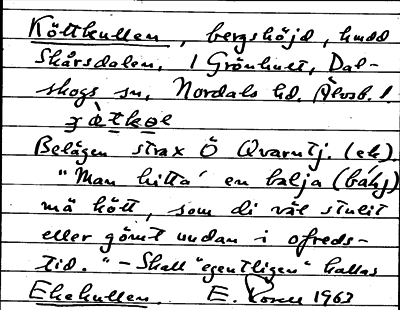 Köttkullen, bergshöjd, hmdd
Skårsdalen, 1 Grönhult, Dal-
skogs sn, Nordals hd. Älvsb. l.
Belägen strax Ö Qvarntj. (ek).
"Man hitta' en balja (báḷj)
må kött, som di väl stulit
eller gömt undan i ofreds-
tid." – Skall "egentligen" kallas
Ekekullen. E. 1963